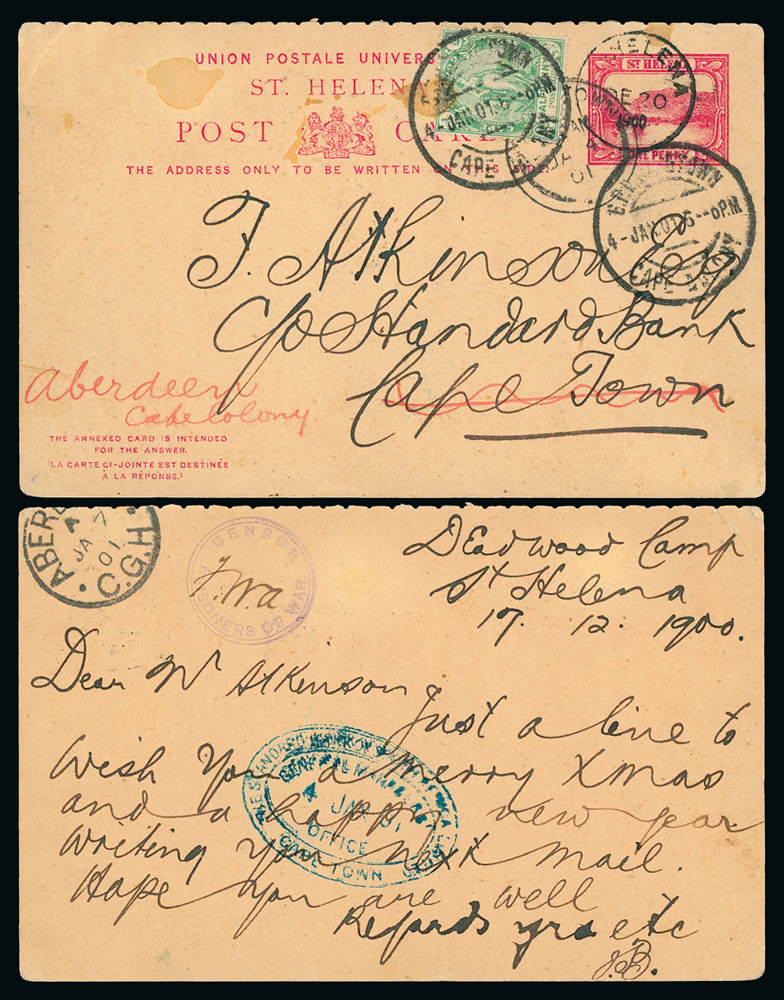 UNION POSTALE UNIVER
ST. HELEN
POST CARD
THE ADDRESS ONLY TO BE WRITTEN ON THIS SIDE
ST HELENA
ONE PENNY
ST HELENA
DE 20
1900
CAPE TOWN
4-JAN.01.5--6PM
CAPE COLONY
JA 4
01
CAPE TOWN
4-JAN.01.5--6PM
CAPE COLONY
F. Atkinson Esq
c/o Standard Bank
Cape Town
Aberdeen
Cape Colony
THE ANNEXED CARD IS INTENDED
FOR THE ANSWER.
(LA CARTE CI-JOINTE EST DESTINÉE
À LA RÉPONSE.)
ABER
JA 7
01
C.G.H.
CENSOR
PRISONERS OF WAR
Deadwood Camp
St Helena
17. 12. 1900.
Dear Mr Atkinson
Just a line to
wish you a merry Xmas
and a happy new year
Writing you next mail.
Hope you are well
Regards yrs etc
THE STANDARD BANK OF
4 JAN 01
OFFICE
CAPE TOWN